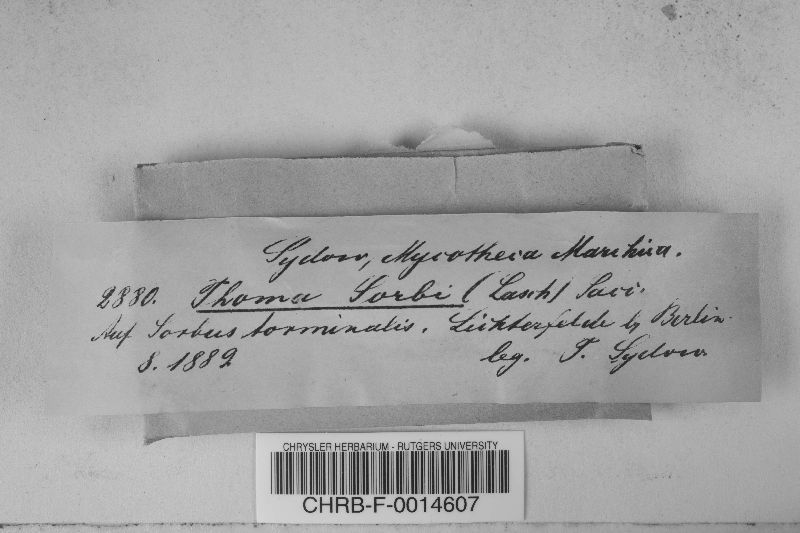 Sydow, Mycotheca Marchica.
2880. Phoma Sorbi (Lasch) Sacc.
Auf Sorbus torminalis. Lichterfelde b Berlin.
8. 1889 leg. P. Sydow
CHRYSLER HERBARIUM - RUTGERS UNIVERSITY
CHRB-F-0014607